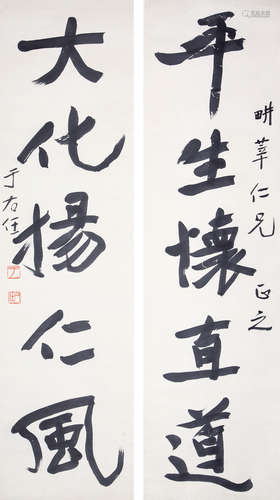 平生懷直道
畊莘仁兄 正之
大化揚仁風
于右任